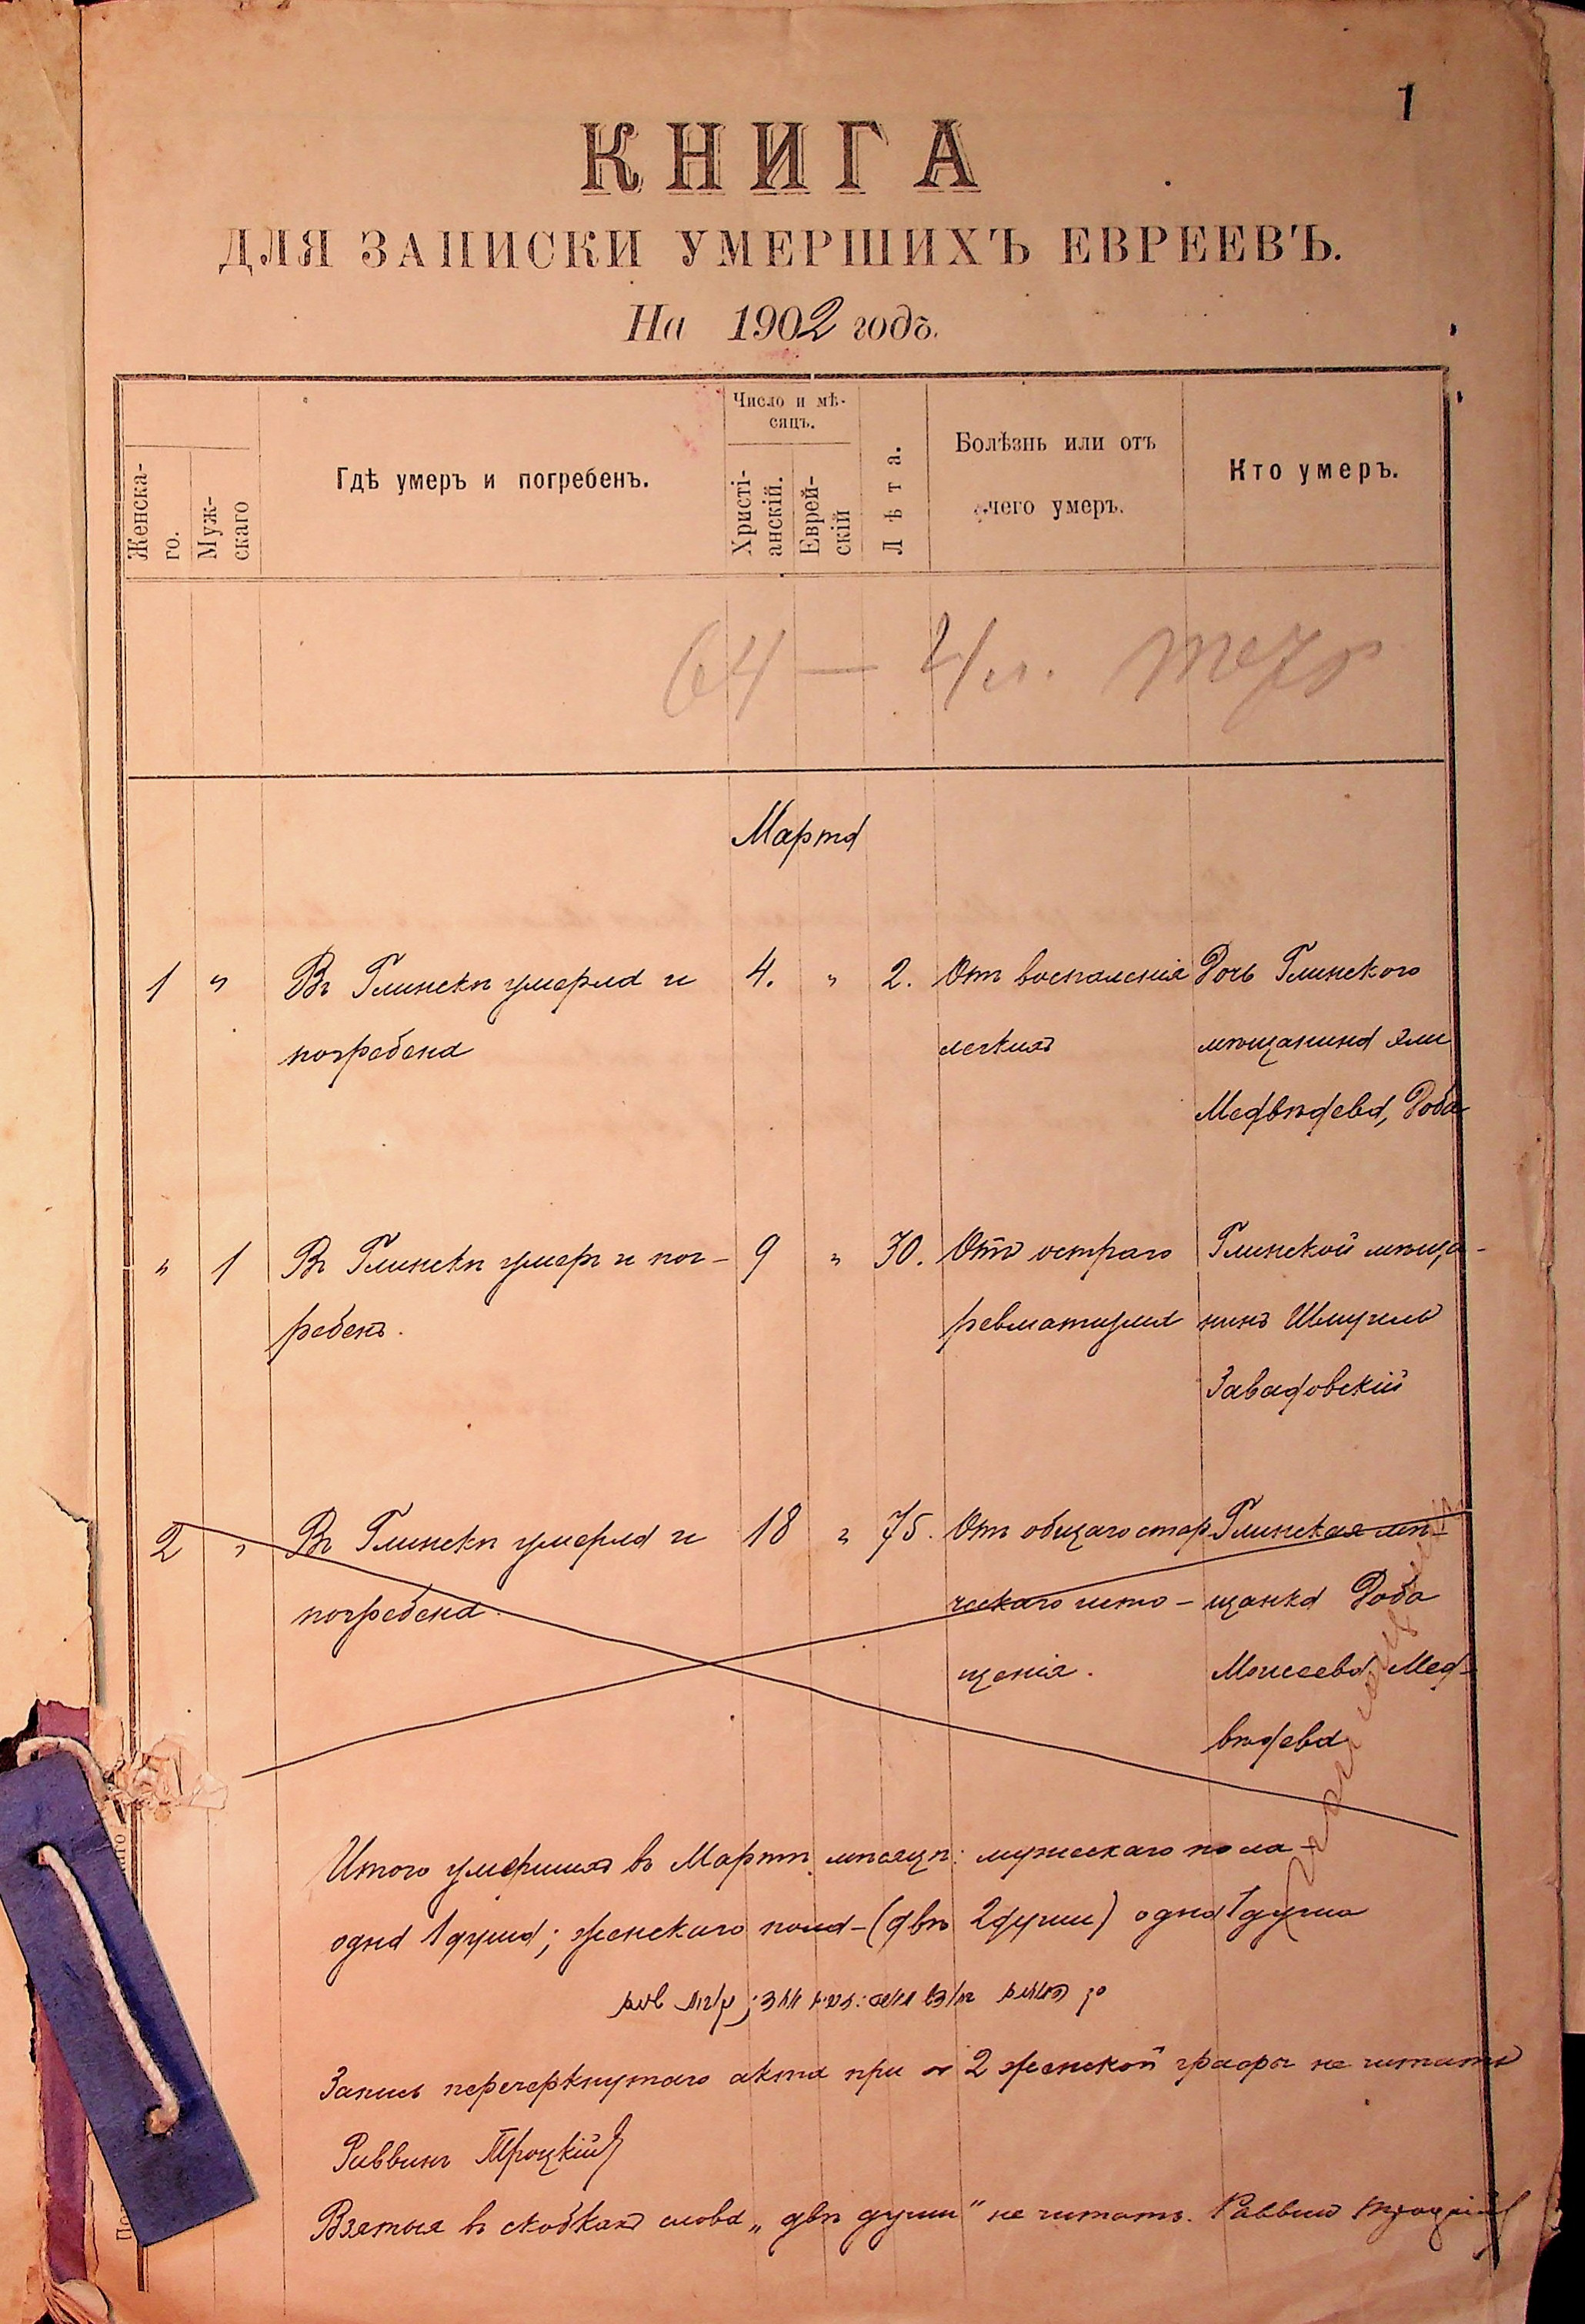 1
КНИГА
ДЛЯ ЗАПИСКИ УМЕРШИХЪ ЕВРЕЕВЪ.
На 1902 годъ.
Женска-
го.
Муж-
скаго
Гдѣ умеръ и погребенъ.
Число и мѣ-
сяцъ.
Христі-
анскій.
Еврей-
скій
Лѣта.
Болѣзнь или отъ
чего умеръ.
Кто умеръ.
64 —
Марта
1 " Въ Глинскѣ умерла и 4. " 2. Отъ воспаленія Дочь Глинского
погребена легкихъ мѣщанина Эли
Медвѣдева, Доба
" 1 Въ Глинскѣ умеръ и пог- 9 " 30. Отъ остраго Глинской мѣща-
ребенъ. ревматизма нинъ Шмуель
Завадовскій
2 " Въ Глинскѣ умерла и 18 " 75. Отъ общаго стар Глинская мѣ-
погребена ческаго исто- щанка Доба
щенія. Моисеева Мед-
вѣдева
Итого умершихъ въ Мартѣ мѣсяцѣ: мужескаго пола -
одна 1 душа; женскаго пола - (двѣ 2 души) одна 1 душа
Запись перечеркнутаго акта при № 2 женской графы не читать
Раввинъ Троцкій
Взятыя въ скобкахъ слова „двѣ души" не читать. Раввинъ Троцкій